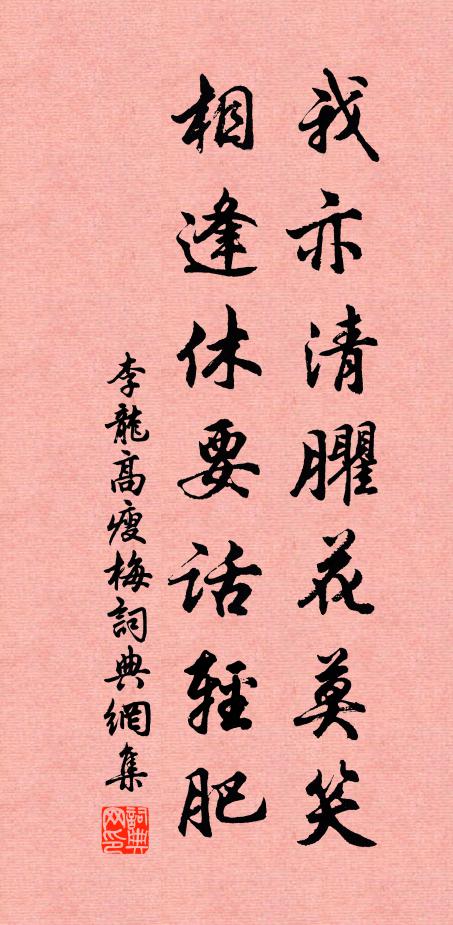 我亦清臞花莫笑
相逢休要話輕肥
李龍高瘦梅詞典網集
詞典网印